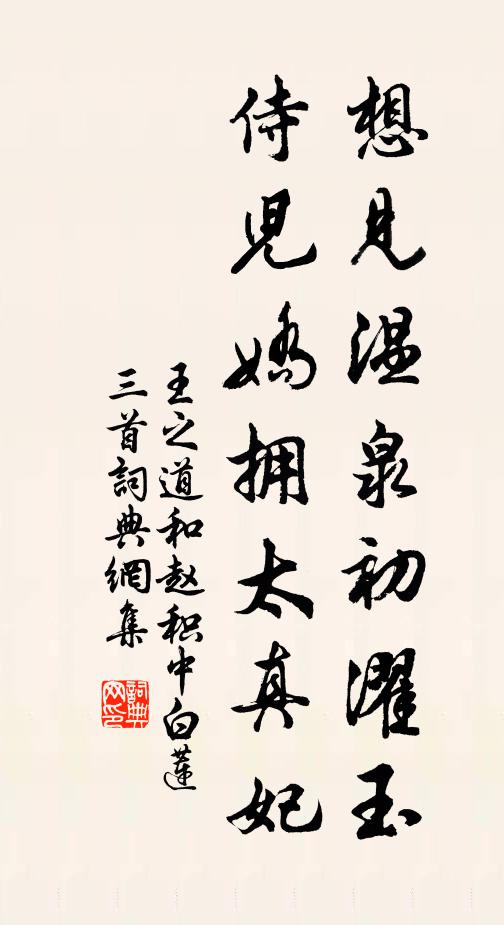 想見温泉初濯玉
侍児嬌拥太真妃
王之道和赵积中白蓮
三首詞典網集
詞典網印